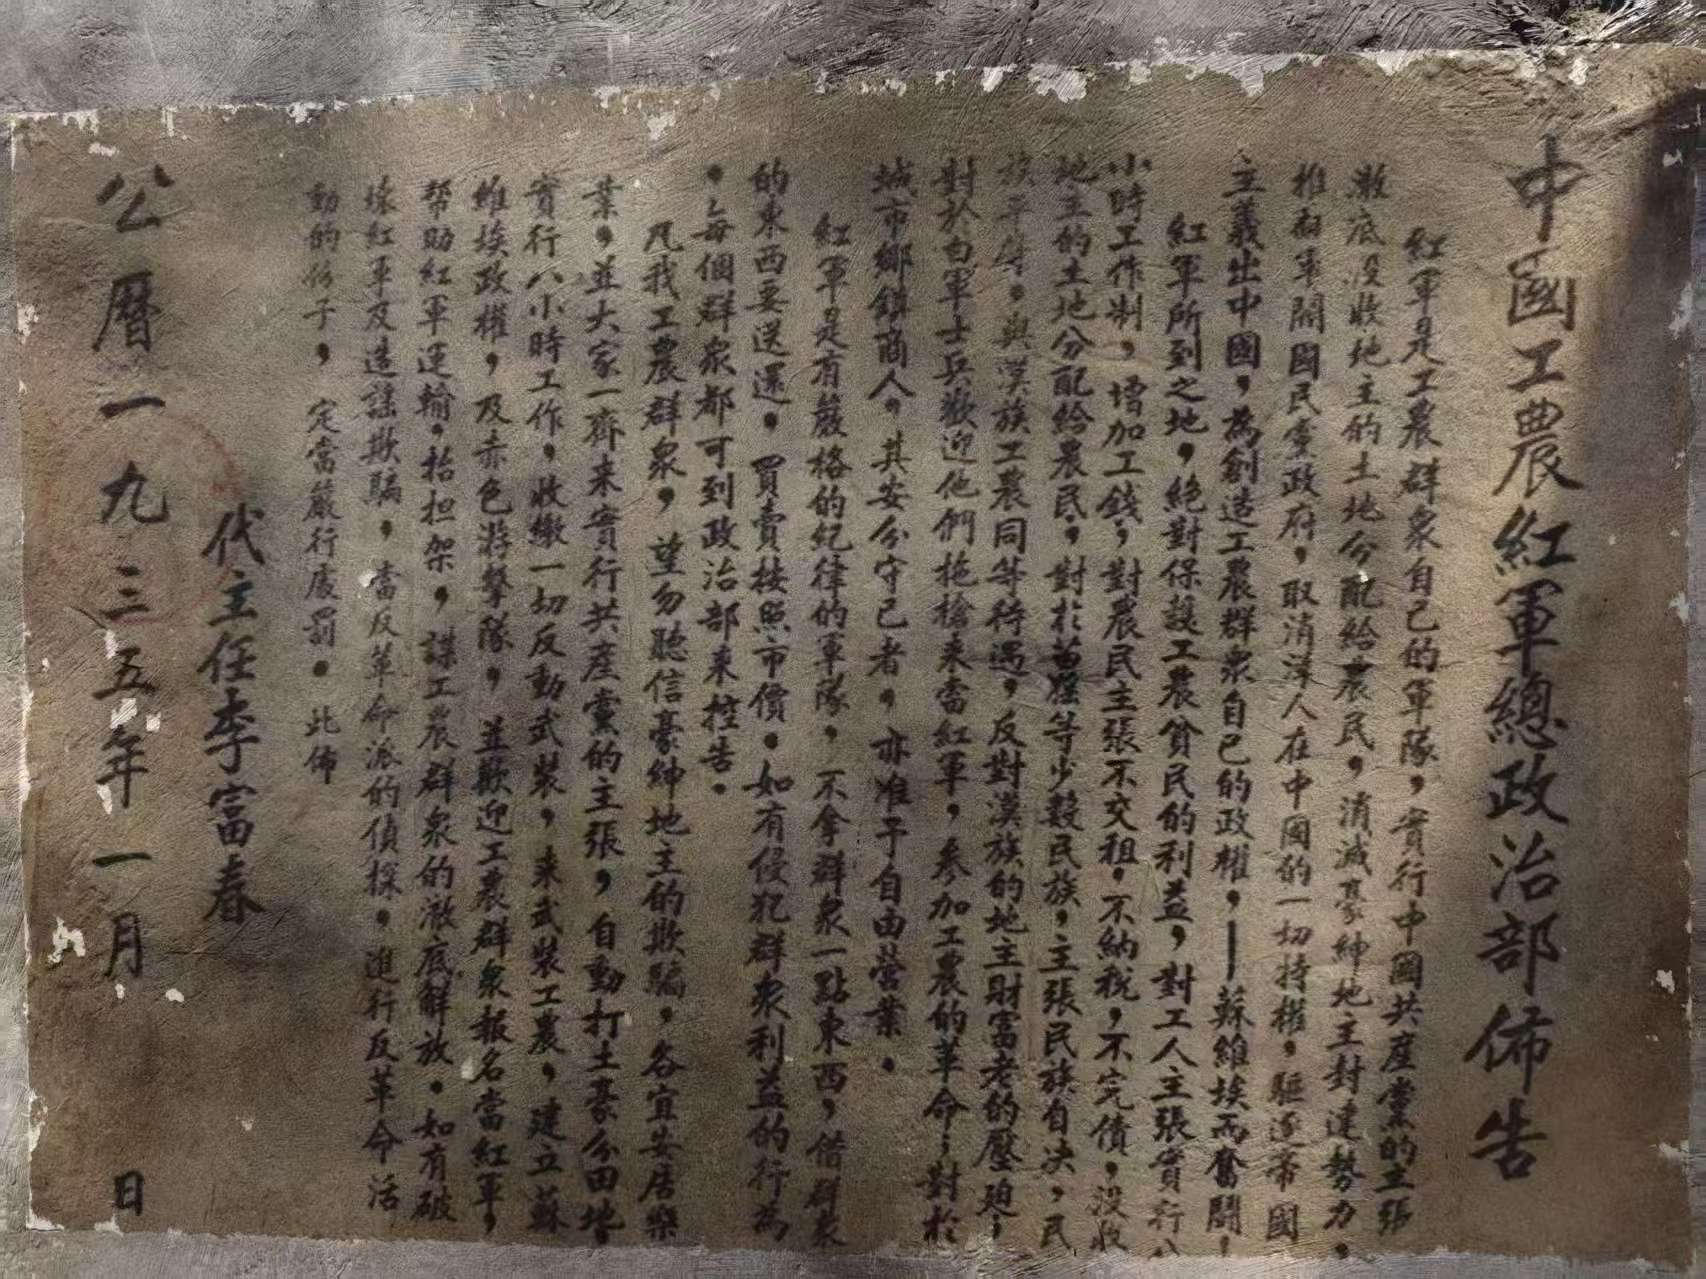 中國工農紅軍總政治部佈告
紅軍是工農群衆自己的軍隊，實行中國共產黨的主張
澈底沒收地主的土地分配給農民，消滅豪紳地主封建勢力，
推翻軍閥國民黨政府，取消洋人在中國的一切特權，驅逐帝國
主義出中國，為創造工農群衆自己的政權，——蘇維埃而奮鬪！
紅軍所到之地，絕對保護工農貧民的利益，對工人主張實行八
小時工作制，增加工錢，對農民主張不交租，不納稅，不完債，沒收
地主的土地分配給農民，對於苗猺等少數民族，主張民族自决，民
族平等，與漢族工農同等待遇，反對漢族的地主財富老的壓迫；
對於白軍士兵歡迎他們拖槍來當紅軍，參加工農的革命；對於
城市鄉鎮商人，其安分守己者，亦准予自由營業．
紅軍是有嚴格的紀律的軍隊，不拿群衆一點東西，借群衆
的東西要送還，買賣按照市價．如有侵犯群衆利益的行為
，每個群衆都可到政治部來控告．
凡我工農群衆，望勿聽信豪紳地主的欺騙，各宜安居樂
業，並大家一齊來實行共產黨的主張，自動打土豪分田地，
實行八小時工作，收繳一切反動武裝，來武裝工農，建立蘇
維埃政權，及赤色游擊隊，並歡迎工農群衆報名當紅軍，
幫助紅軍運輸，抬担架，謀工農群衆的澈底解放．如有破
壞紅軍及造謠欺騙，當反革命派的偵探，進行反革命活
動的份子，定當嚴行處罰．此佈
代主任李富春
公曆一九三五年一月　日